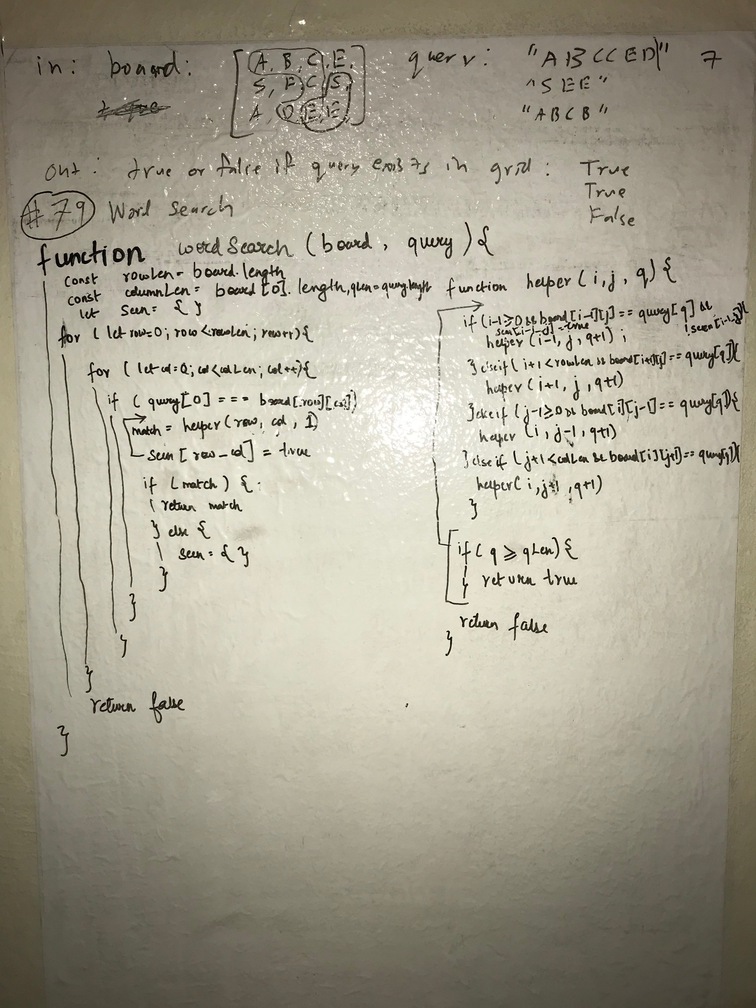 in: board: [A, B, C, E, query: "ABCCED" 7
S, F, C, S, "SEE"
A, D, E, E] "ABCB"
Out: true or false if query exists in grid: True
True
#79 Word Search False
function wordSearch (board, query) {
const rowLen = board.length
const columnLen = board[0].length, qLen = query.length
let seen = { }
for (let row=0; row<rowLen; row++){
for (let col=0; col<colLen; col++){
if (query[0] === board[row][col])
match = helper(row, col, 1)
seen[row_col] = true
if (match) {
return match
} else {
seen = { }
}
}
}
}
return false
}
function helper(i, j, q) {
if (i-1≥0 && board[i-1][j] == query[q] &&
!seen[i-1_j]
seen[i-1_j] = true
helper(i-1, j, q+1);
} else if (i+1<rowLen && board[i+1][j] == query[q]){
helper(i+1, j, q+1)
} else if (j-1≥0 && board[i][j-1] == query[q]){
helper(i, j-1, q+1)
} else if (j+1<colLen && board[i][j+1] == query[q]){
helper(i, j+1, q+1)
}
if (q ≥ qLen) {
return true
}
return false
}